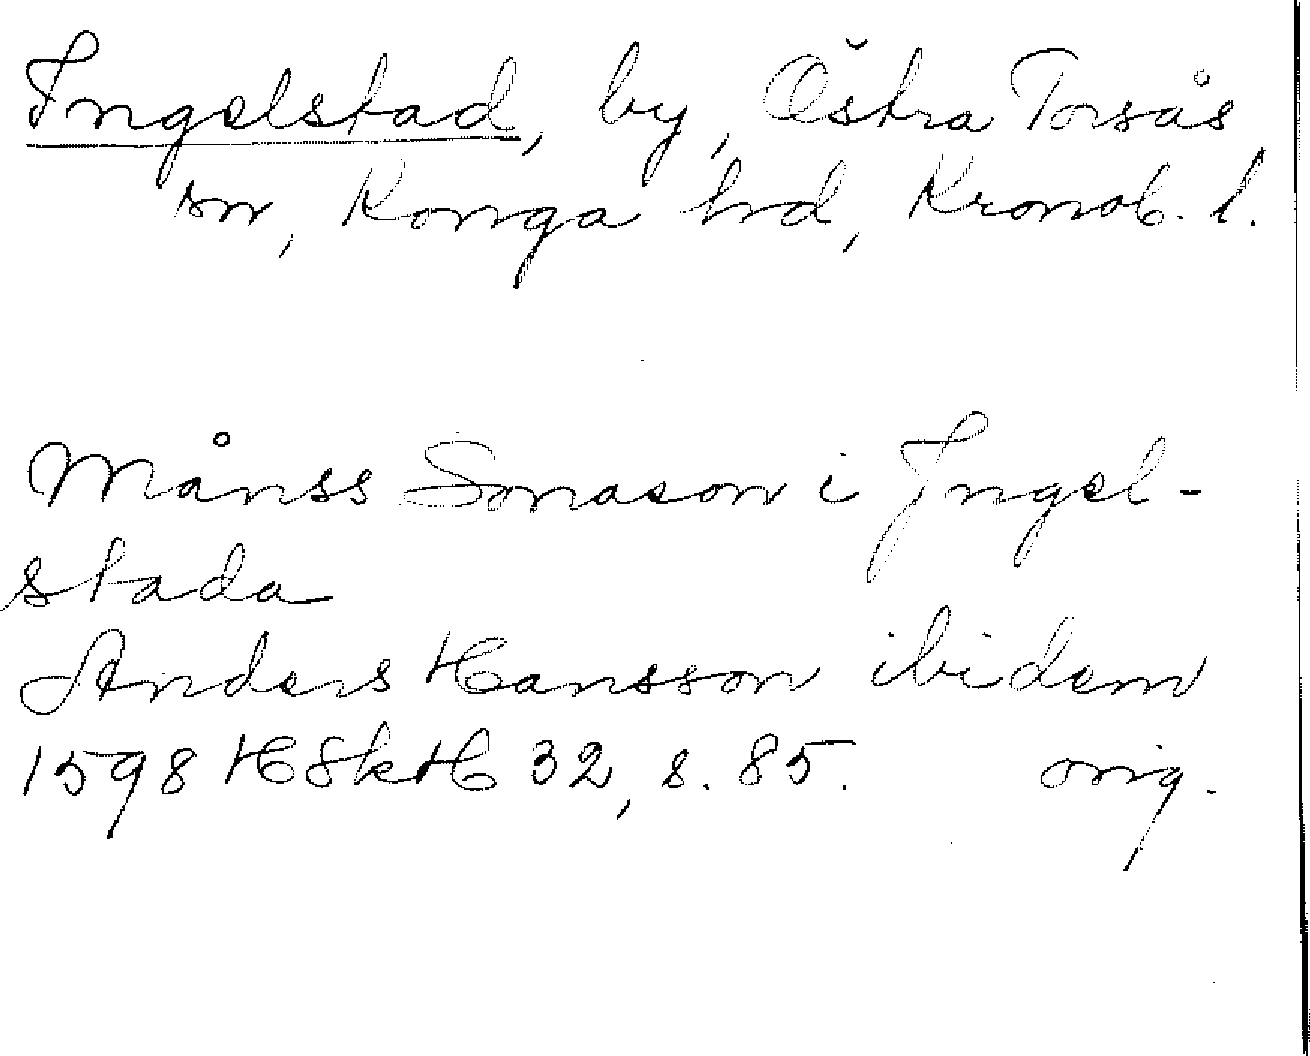 Ingelstad, by, Östra Torsås
sn, Konga hd, Kronob. l.
Månss Sonason i Ingel-
stada
Anders Hansson ibidem
1598 HSkH 32, s. 85. orig.